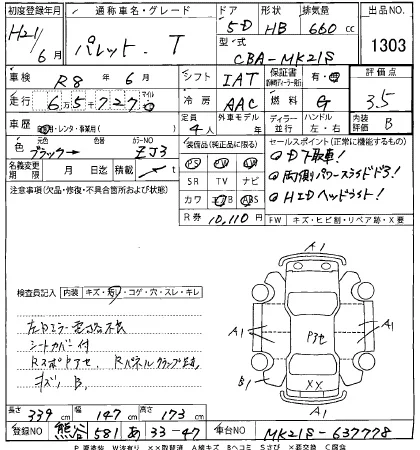 初度登録年月 通称車名・グレード ドア 形状 排気量 出品NO.
H21/6月 パレット T 5D HB 660cc 1303
型式 CBA-MK21S
車検 R8年6月 シフト IAT 保証書 有・無 評価点 3.5
走行 6万5千727 マイル 冷房 AAC 燃料 G
車歴 自用・レンタ・事業用( ) 定員 4人 外車モデル年 ディーラー 並行 ハンドル 左・右 内装評価 B
色 元色 ブラック→ 色替 カラーNO ZJ3 装備品(純正品に限る) セールスポイント(正常に機能するもの)
PS PW ◎D下取車!
名義変更期限 月 日迄 積載 t SR TV ナビ ◎両側パワースライドドア!
注意事項(欠品・修復・不具合箇所および状態) カワ エアB ABS ◎HIDヘッドライト!
R券 10,110円 FW キズ・ヒビ割・リペア跡・X要
検査員記入 内装 キズ・汚レ・コゲ・穴・スレ・キレ
左Dミラー電格不良
シートカバー付
Rスポアセ Rパネルクランプ跡
キズ、B、
A1
A1 Pアセ A1
B1 XX
A1
長さ 339cm 幅 147cm 高さ 173cm
登録NO 熊谷 581 あ 33-47 車台NO MK21S-637778
P要塗装 W波有り XX取替済 Aキズ Bヘコミ Sサビ X要交換 C腐食